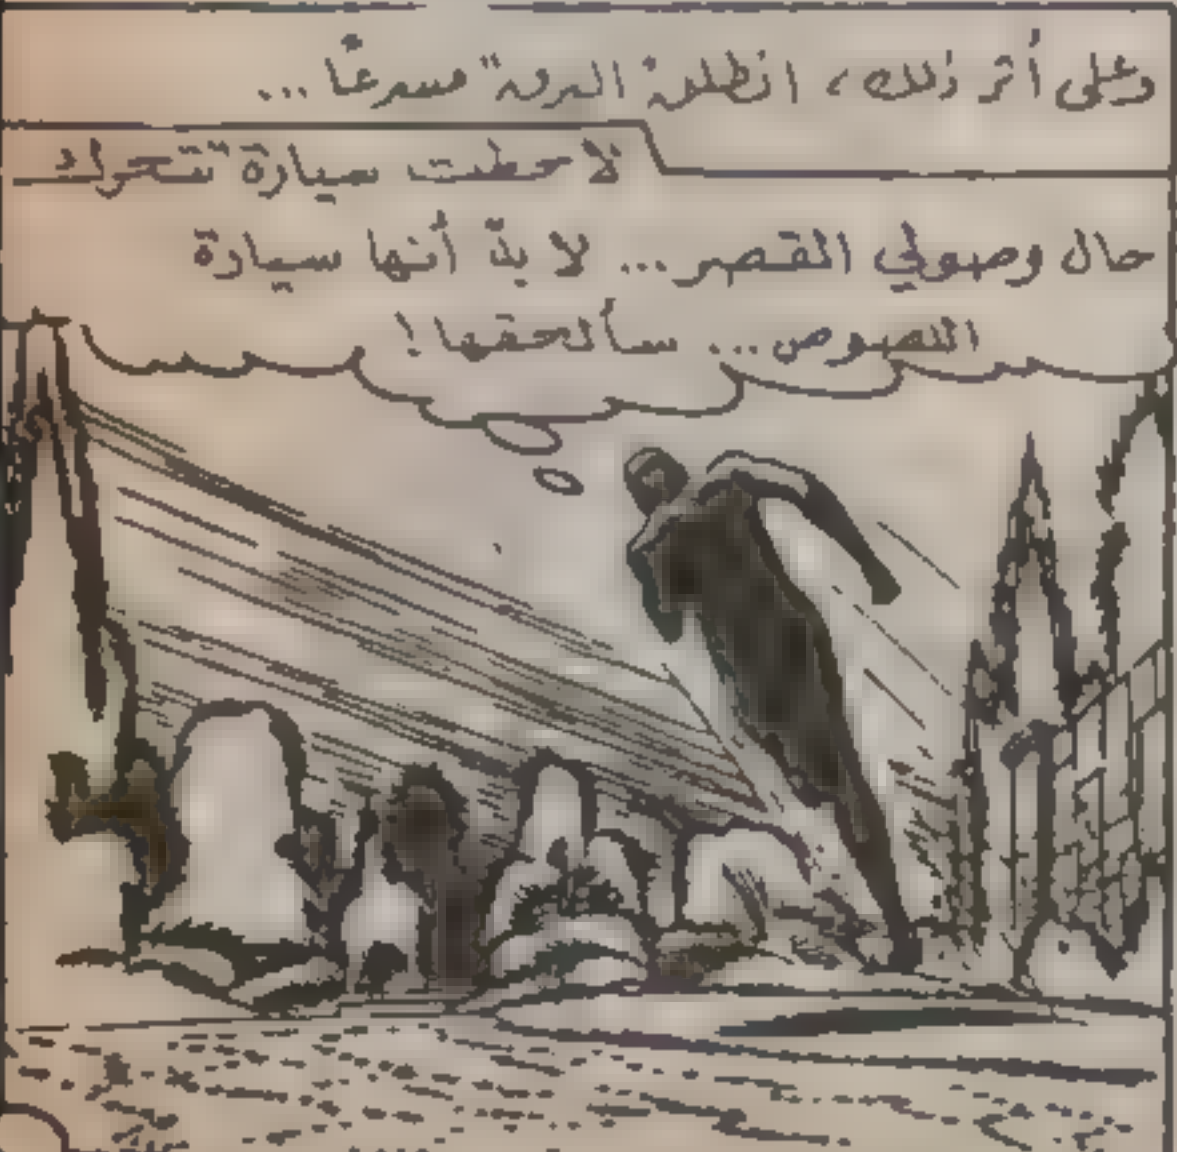 وعلى أثر ذلك، انطلق "البرق" مسرعًا...
لاحظت سيارة تتحرك
حال وصولي القصر... لا بدّ أنها سيارة
اللصوص... سألحقها!